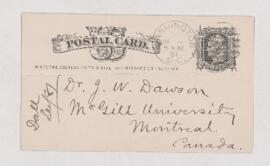 POSTAL CARD.
WRITE THE ADDRESS ON THIS SIDE - THE MESSAGE ON THE OTHER
Dr. J. W. Dawson
McGill University
Montreal
Canada.
Dall